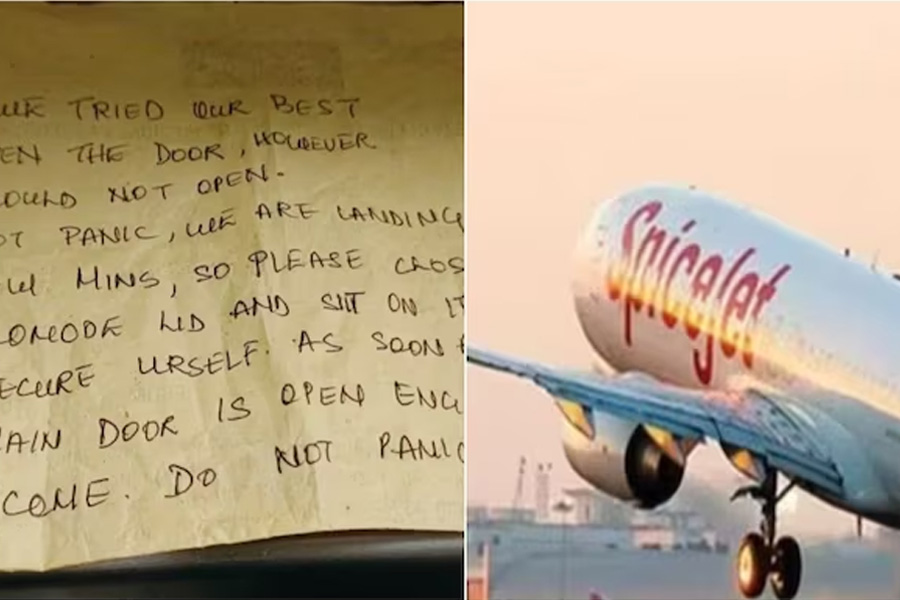 TRIED OUR BEST
EN THE DOOR, HOWEVER
OULD NOT OPEN.
OT PANIC, WE ARE LANDING
W MINS, SO PLEASE CLOS
OMODE LID AND SIT ON IT
ECURE URSELF. AS SOON
AIN DOOR IS OPEN ENG
COME. DO NOT PANIC
SpiceJet